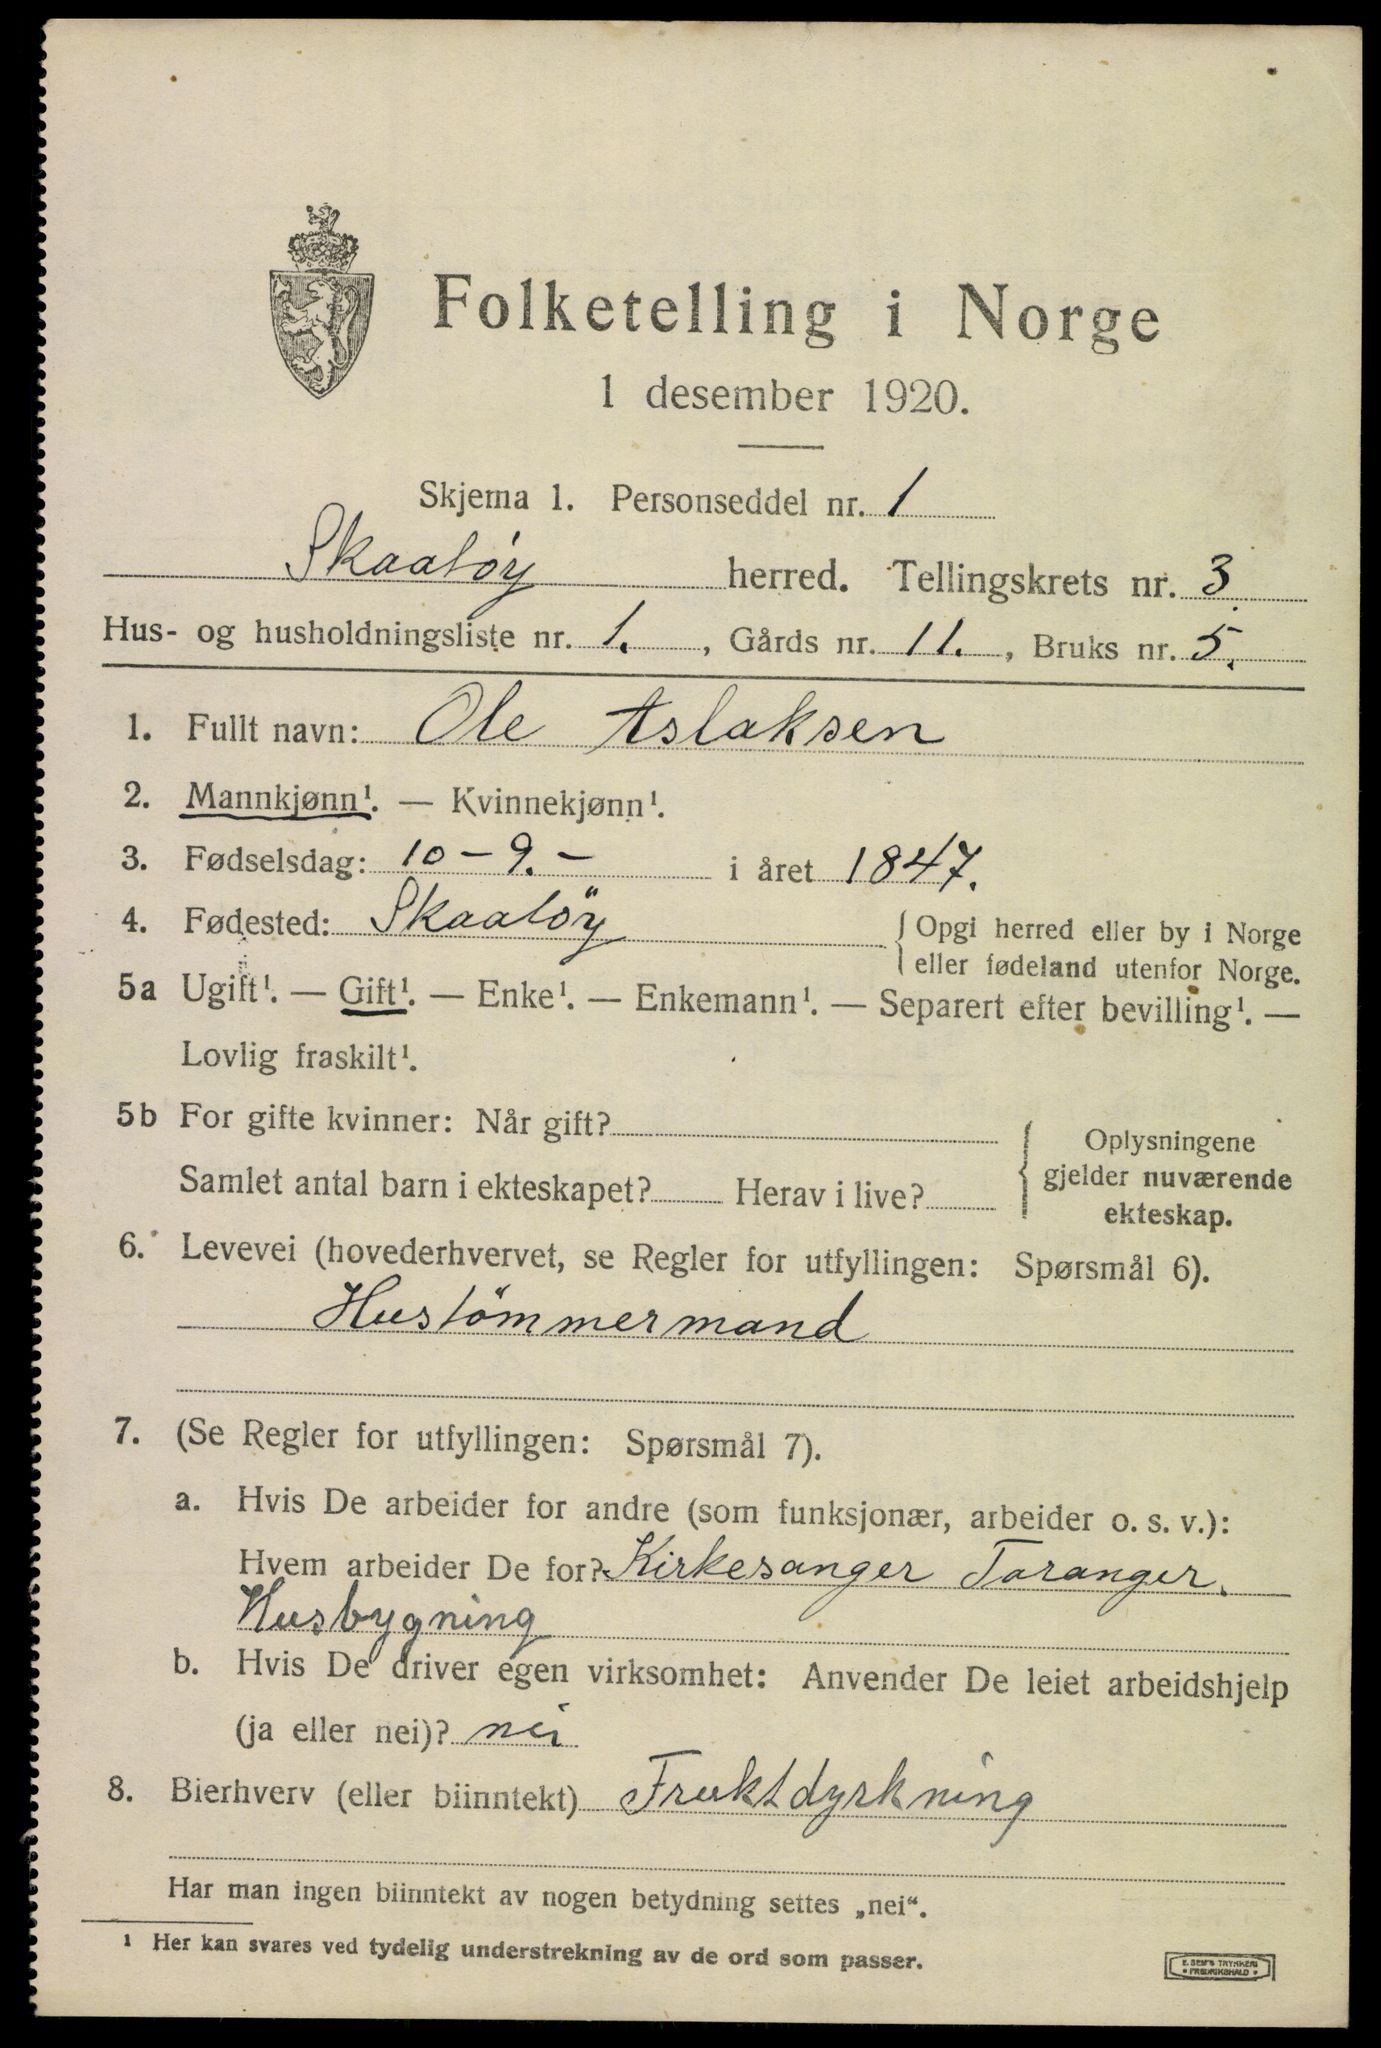 Folketelling i Norge
1 desember 1920.
Skjema 1. Personseddel nr. 1
Skaatöy herred. Tellingskrets nr. 3.
Hus- og husholdningsliste nr. 1., Gårds nr. 11., Bruks nr. 5.
1. Fullt navn: Ole Aslaksen
2. Mannkjønn¹. — Kvinnekjønn¹.
3. Fødselsdag: 10 - 9. - i året 1847.
4. Fødested: Skaatöy { Opgi herred eller by i Norge
eller fødeland utenfor Norge.
5a Ugift¹. — Gift¹. — Enke¹. — Enkemann¹. — Separert efter bevilling¹. —
Lovlig fraskilt¹.
5b For gifte kvinner: Når gift?
Samlet antal barn i ekteskapet? Herav i live?
{ Oplysningene
gjelder nuværende
ekteskap.
6. Levevei (hovederhvervet, se Regler for utfyllingen: Spørsmål 6).
Hustömmermand
7. (Se Regler for utfyllingen: Spørsmål 7).
a. Hvis De arbeider for andre (som funksjonær, arbeider o. s. v.):
Hvem arbeider De for? Kirkesanger Taranger.
Husbygning
b. Hvis De driver egen virksomhet: Anvender De leiet arbeidshjelp
(ja eller nei)? nei
8. Bierhverv (eller biinntekt) Fruktdyrkning
Har man ingen biinntekt av nogen betydning settes „nei“.
¹ Her kan svares ved tydelig understrekning av de ord som passer.
E. SEM'S TRYKKERI
• FREDRIKSHALD •